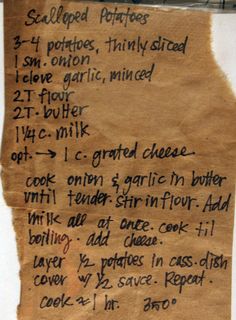 Scalloped Potatoes
3-4 potatoes, thinly sliced
1 sm. onion
1 clove garlic, minced
2T flour
2T. butter
1 1/4 c. milk
opt. → 1 c. grated cheese
cook onion & garlic in butter
until tender. stir in flour. Add
milk all at once. cook til
boiling. add cheese.
Layer 1/2 potatoes in cass. dish
cover w/ 1/2 sauce. Repeat.
cook ≈ 1 hr. 350°